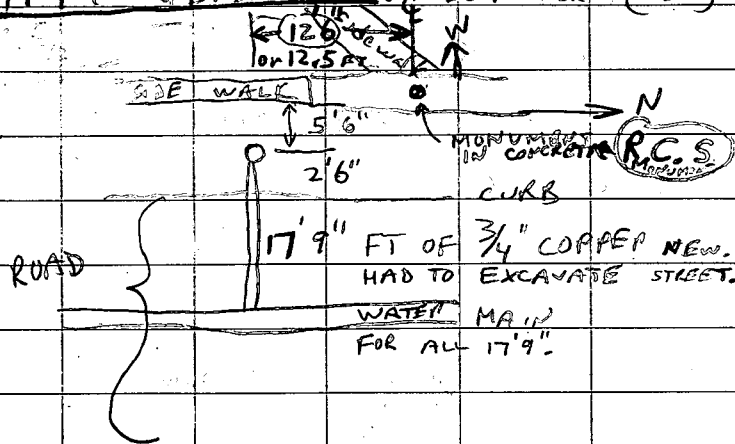 126
or 12.5 FT
W
SIDE WALK
N
5'6"
MONUMENT
IN CONCRETE
R.C.S.
MONUMENT
2'6"
CURB
ROAD
17'9" FT OF 3/4" COPPER NEW.
HAD TO EXCAVATE STREET.
WATER MAIN
FOR ALL 17'9".